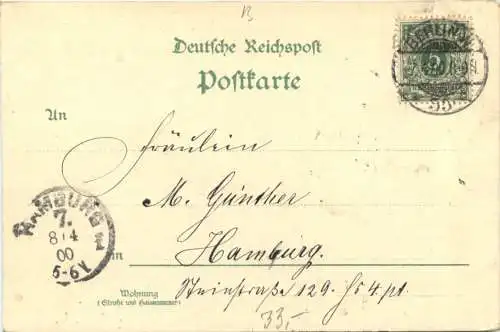 B
Deutsche Reichspost
Postkarte
An
Fräulein
M. Günther
Hamburg.
in
Steinstraße 129. Hs 4 pt.
Wohnung
(Straße und Hausnummer)
33,-
BERLIN
HAMBURG 1
7.
8 4
00
5-6